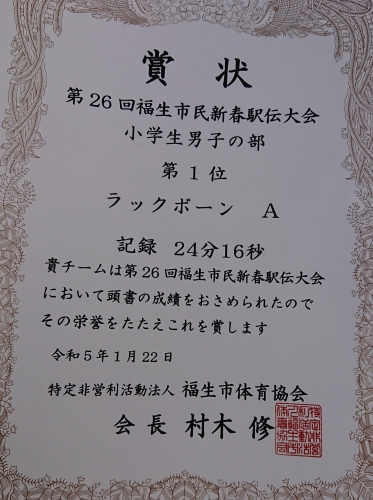 賞状
第26回福生市民新春駅伝大会
小学生男子の部
第1位
ラックボーン A
記録 24分16秒
貴チームは第26回福生市民新春駅伝大会
において頭書の成績をおさめられたので
その栄誉をたたえこれを賞します
令和5年1月22日
特定非営利活動法人 福生市体育協会
会長 村木 修